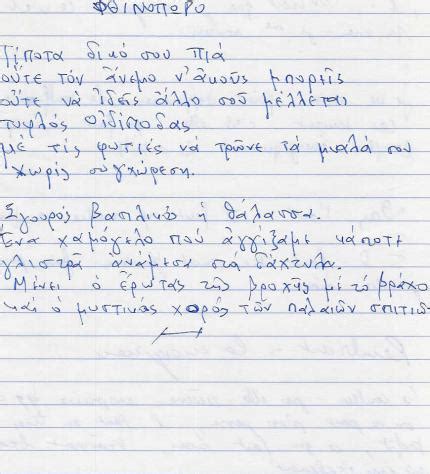 ΦΘΙΝΟΠΩΡΟ
Τίποτα δικό σου πιά
οὔτε τόν ἄνεμο ν' ἀκοῦς μπορεῖς
οὔτε νά ἰδεῖς ἄλλο σοῦ μέλλεται
τυφλός Οἰδίποδας
μέ τίς φωτιές νά τρῶνε τά μυαλά σου
χωρίς συγχώρεση.
Σγουρός βασιλικός ἡ θάλασσα.
Ἕνα χαμόγελο πού ἀγγίζαμε κάποτε
γλιστρᾶ ἀνάμεσα στά δάχτυλα.
Μένει ὁ ἔρωτας τῆς βροχῆς μέ τό βράχο
καί ὁ μυστικός χορός τῶν παλαιῶν σπιτιῶν